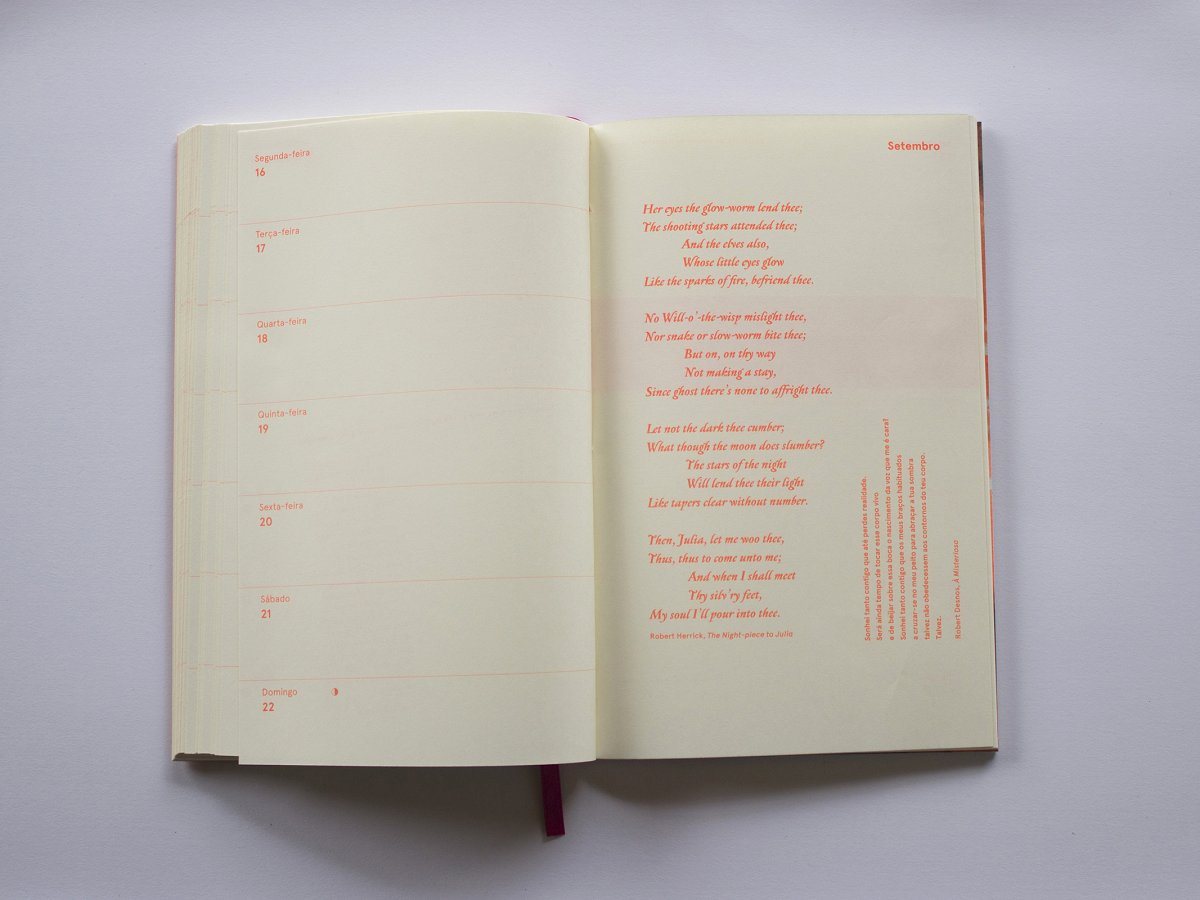 Segunda-feira
16
Terça-feira
17
Quarta-feira
18
Quinta-feira
19
Sexta-feira
20
Sábado
21
Domingo
22
Setembro
Her eyes the glow-worm lend thee;
The shooting stars attended thee;
And the elves also,
Whose little eyes glow
Like the sparks of fire, befriend thee.
No Will-o'-the-wisp mislight thee,
Nor snake or slow-worm bite thee;
But on, on thy way
Not making a stay,
Since ghost there's none to affright thee.
Let not the dark thee cumber;
What though the moon does slumber?
The stars of the night
Will lend thee their light
Like tapers clear without number.
Then, Julia, let me woo thee,
Thus, thus to come unto me;
And when I shall meet
Thy silv'ry feet,
My soul I'll pour into thee.
Robert Herrick, The Night-piece to Julia
Sonhei tanto contigo que até perdes realidade.
Será ainda tempo de tocar esse corpo vivo
e de beijar sobre essa boca o nascimento da voz que me é cara?
Sonhei tanto contigo que os meus braços habituados
a cruzar-se no meu peito para abraçar a tua sombra
talvez não obedecessem aos contornos do teu corpo.
Talvez.
Robert Desnos, À Misteriosa